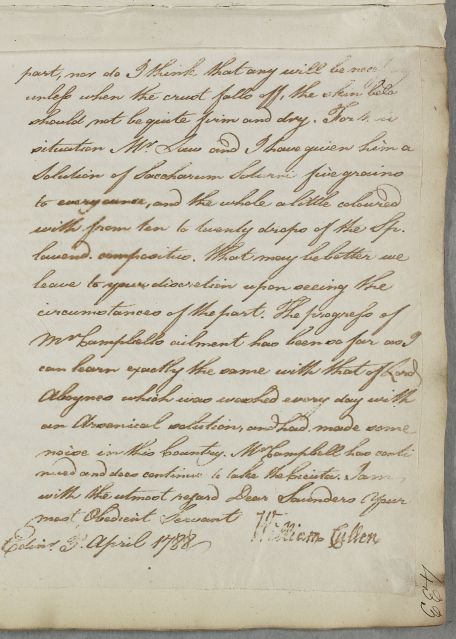 part, nor do I think that any will be
unless when the crust falls off, the skin
should not be quite firm and dry. For
situation Mr. Law and I have given him a
Solution of Saccharum Saturni five grains
to every ounce, and the whole a little coloured
with from ten to twenty drops of the Sp.
lavend. compositus. What may be better we
leave to your discretion upon seeing the
circumstances of the part. The progress of
Mr. Campbells ailment has been so far as I
can learn exactly the same with that of Lord
Aboynes which was washed every day with
an Arsenical solution, and had made some
noise in this Country. Mr. Campbell has conti
nued and does continue to take the Cicuta. I am
with the utmost regard Dear Saunders Your
most Obedient Servant
William Cullen
Edinr. 3d. April 1788
433